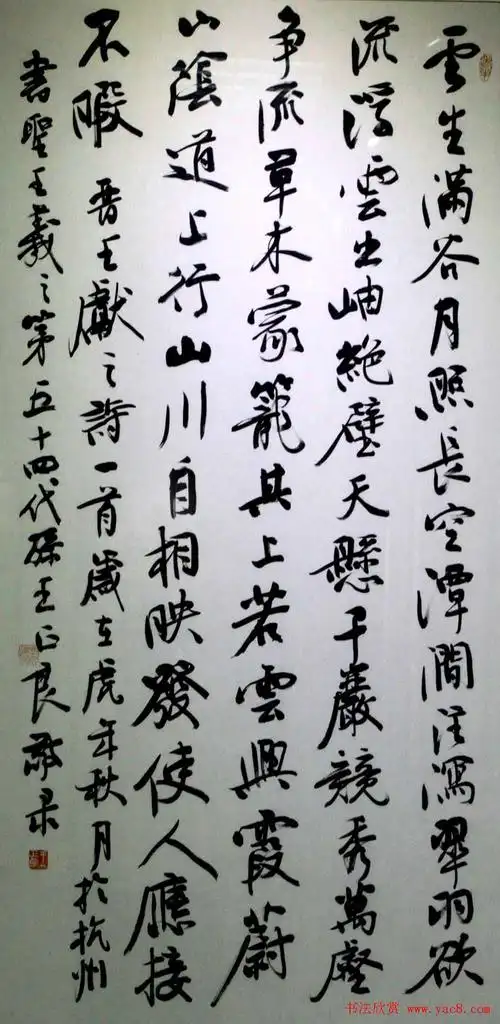 雲生滿谷月照長空潭澗注瀉翠羽欲
流浮雲出岫絕壁天懸千巖競秀萬壑
爭流草木蒙籠其上若雲興霞蔚
山陰道上行山川自相映發使人應接
不暇 晋王獻之詩一首歲在虎年秋月於杭州
書聖王羲之第五十四代孫王正良敬录
书法欣赏 www.yac8.com